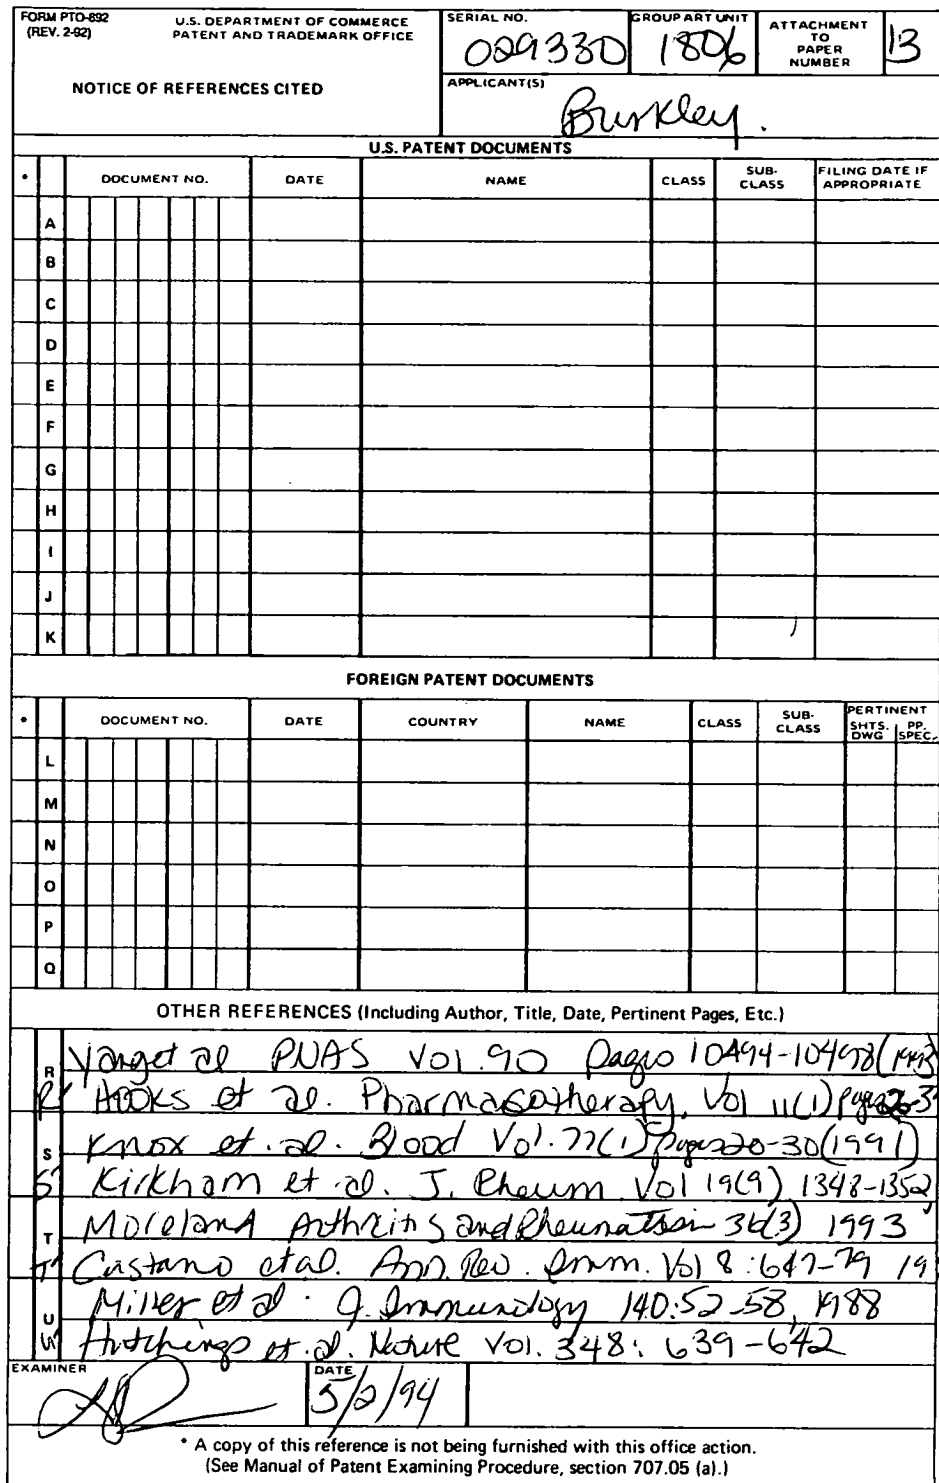 FORM PTO-892
(REV. 2-92)
U.S. DEPARTMENT OF COMMERCE
PATENT AND TRADEMARK OFFICE
NOTICE OF REFERENCES CITED
SERIAL NO.
029330
GROUP ART UNIT
1806
ATTACHMENT
TO
PAPER
NUMBER
13
APPLICANT(S)
Burkley.
U.S. PATENT DOCUMENTS
* DOCUMENT NO. DATE NAME CLASS SUB-CLASS FILING DATE IF APPROPRIATE
A
B
C
D
E
F
G
H
I
J
K
FOREIGN PATENT DOCUMENTS
* DOCUMENT NO. DATE COUNTRY NAME CLASS SUB-CLASS PERTINENT SHTS. DWG PP. SPEC.
L
M
N
O
P
Q
OTHER REFERENCES (Including Author, Title, Date, Pertinent Pages, Etc.)
R Yang et al PNAS Vol. 90 pages 10494-10498 (1993)
R' Hooks et al. Pharmacotherapy, Vol 11(1) pages 26-3
S Knox et. al. Blood Vol. 77(1) pages 20-30 (1991)
S' Kirkham et al. J. Rheum Vol 19(9) 1348-1352
T Moreland Arthritis and Rheumatism 36(3) 1993
T' Castano et al. Ann. Rev. Imm. Vol 8:647-79 19
U Miller et al. J. Immunology 140:52-58, 1988
U' Hutchings et. al. Nature Vol. 348: 639-642
EXAMINER
DATE
5/2/94
* A copy of this reference is not being furnished with this office action.
(See Manual of Patent Examining Procedure, section 707.05 (a).)